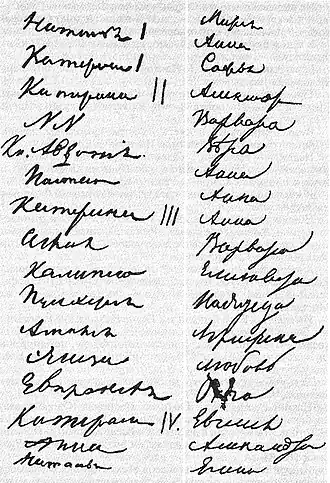 Наталья I
Катерина I
Катерина II
NN
Кн. Авдотия.
Настасья
Катерина III
Аглая
Калипсо
Пульхерия
Амалия
Элиза
Евпраксея
Катерина IV.
Анна
Наталья
Мария
Анна
Софья
Александра
Варвара
Вера
Анна
Анна
Анна
Варвара
Елизавета
Надежда
Аграфена
Любовь
Ольга
Евгения
Александра
Елена